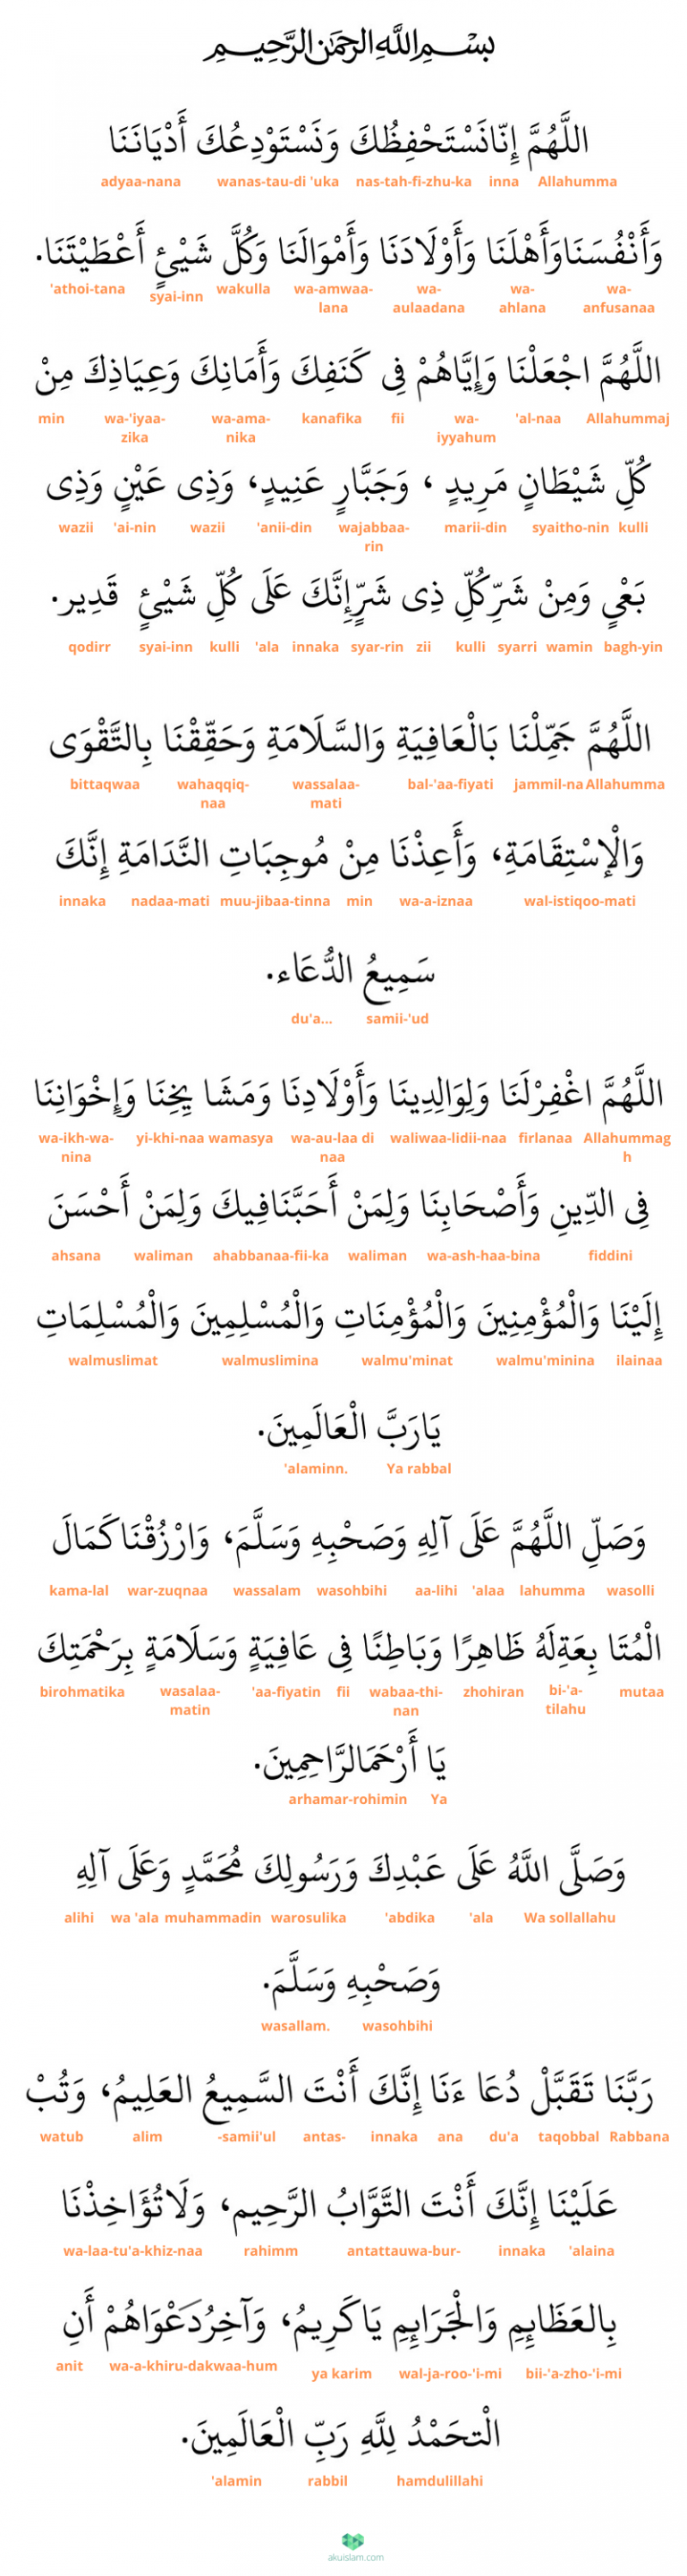 بسم الله الرحمن الرحيم
اللَّهُمَّ إِنَّانَسْتَحْفِظُكَ وَنَسْتَوْدِعُكَ أَدْيَانَنَا
adyaa-nana wanas-tau-di 'uka nas-tah-fi-zhu-ka inna Allahumma
وَأَنْفُسَنَاوَأَهْلَنَا وَأَوْلَادَنَا وَأَمْوَالَنَا وَكُلَّ شَيْئٍ أَعْطَيْتَنَا.
'athoi-tana syai-inn wakulla wa-amwaa- wa- wa- wa-
lana aulaadana ahlana anfusanaa
اللَّهُمَّ اجْعَلْنَا وَإِيَّاهُمْ فِى كَنَفِكَ وَأَمَانِكَ وَعِيَاذِكَ مِنْ
min wa-'iyaa- wa-ama- kanafika fii wa- 'al-naa Allahummaj
zika nika iyyahum
كُلِّ شَيْطَانٍ مَرِيدٍ ، وَجَبَّارٍ عَنِيدٍ، وَذِى عَيْنٍ وَذِى
wazii 'ai-nin wazii 'anii-din wajabbaa- marii-din syaitho-nin kulli
rin
بَغْيٍ وَمِنْ شَرِّكُلِّ ذِى شَرٍّإِنَّكَ عَلَى كُلِّ شَيْئٍ قَدِير.
qodirr syai-inn kulli 'ala innaka syar-rin zii kulli syarri wamin bagh-yin
اللَّهُمَّ جَمِّلْنَا بَالْعَافِيَةِ وَالسَّلَامَةِ وَحَقِّقْنَا بِالتَّقْوَى
bittaqwaa wahaqqiq- wassalaa- bal-'aa-fiyati jammil-na Allahumma
naa mati
وَالْإسْتِقَامَةِ، وَأَعِذْنَا مِنْ مُوجِبَاتِ النَّدَامَةِ إِنَّكَ
innaka nadaa-mati muu-jibaa-tinna min wa-a-iznaa wal-istiqoo-mati
سَمِيعُ الدُّعَاء.
du'a... samii-'ud
اللَّهُمَّ اغْفِرْلَنَا وَلِوَالِدِينَا وَأَوْلَادِنَا وَمَشَا يِخِنَا وَإِخْوَانِنَا
wa-ikh-wa- yi-khi-naa wamasya wa-au-laa di waliwaa-lidii-naa firlanaa Allahummag
nina naa h
فِى الدِّينِ وَأَصْحَابِنَا وَلِمَنْ أَحَبَّنَافِيكَ وَلِمَنْ أَحْسَنَ
ahsana waliman ahabbanaa-fii-ka waliman wa-ash-haa-bina fiddini
إِلَيْنَا وَالْمُؤْمِنِينَ وَالْمُؤْمِنَاتِ وَالْمُسْلِمِينَ وَالْمُسْلِمَاتِ
walmuslimat walmuslimina walmu'minat walmu'minina ilainaa
يَارَبَّ الْعَالَمِينَ.
'alaminn. Ya rabbal
وَصَلِّ اللَّهُمَّ عَلَى آلِهِ وَصَحْبِهِ وَسَلَّمَ، وَارْزُقْنَاكَمَالَ
kama-lal war-zuqnaa wassalam wasohbihi aa-lihi 'alaa lahumma wasolli
الْمُتَا بِعَةِلَهُ ظَاهِرًا وَبَاطِنًا فِى عَافِيَةٍ وَسَلَامَةٍ بِرَحْمَتِكَ
birohmatika wasalaa- 'aa-fiyatin fii wabaa-thi- zhohiran bi-'a- mutaa
matin nan tilahu
يَا أَرْحَمَالرَّاحِمِينَ.
arhamar-rohimin Ya
وَصَلَّى اللَّهُ عَلَى عَبْدِكَ وَرَسُولِكَ مُحَمَّدٍ وَعَلَى آلِهِ
alihi wa 'ala muhammadin warosulika 'abdika 'ala Wa sollallahu
وَصَحْبِهِ وَسَلَّمَ.
wasallam. wasohbihi
رَبَّنَا تَقَبَّلْ دُعَا ءَنَا إِنَّكَ أَنْتَ السَّمِيعُ العَلِيمُ، وَتُبْ
watub alim -samii'ul antas- innaka ana du'a taqobbal Rabbana
عَلَيْنَا إِنَّكَ أَنْتَ التَّوَّابُ الرَّحِيم، وَلَاتُؤَاخِذْنَا
wa-laa-tu'a-khiz-naa rahimm antattauwa-bur- innaka 'alaina
بِالعَظَائِمِ وَالْجَرَائِمِ يَاكَرِيمُ، وَآخِرُدَعْوَاهُمْ أَنِ
anit wa-a-khiru-dakwaa-hum ya karim wal-ja-roo-'i-mi bii-'a-zho-'i-mi
الْتحَمْدُ لِلَّهِ رَبِّ الْعَالَمِينَ.
'alamin rabbil hamdulillahi
akuislam.com